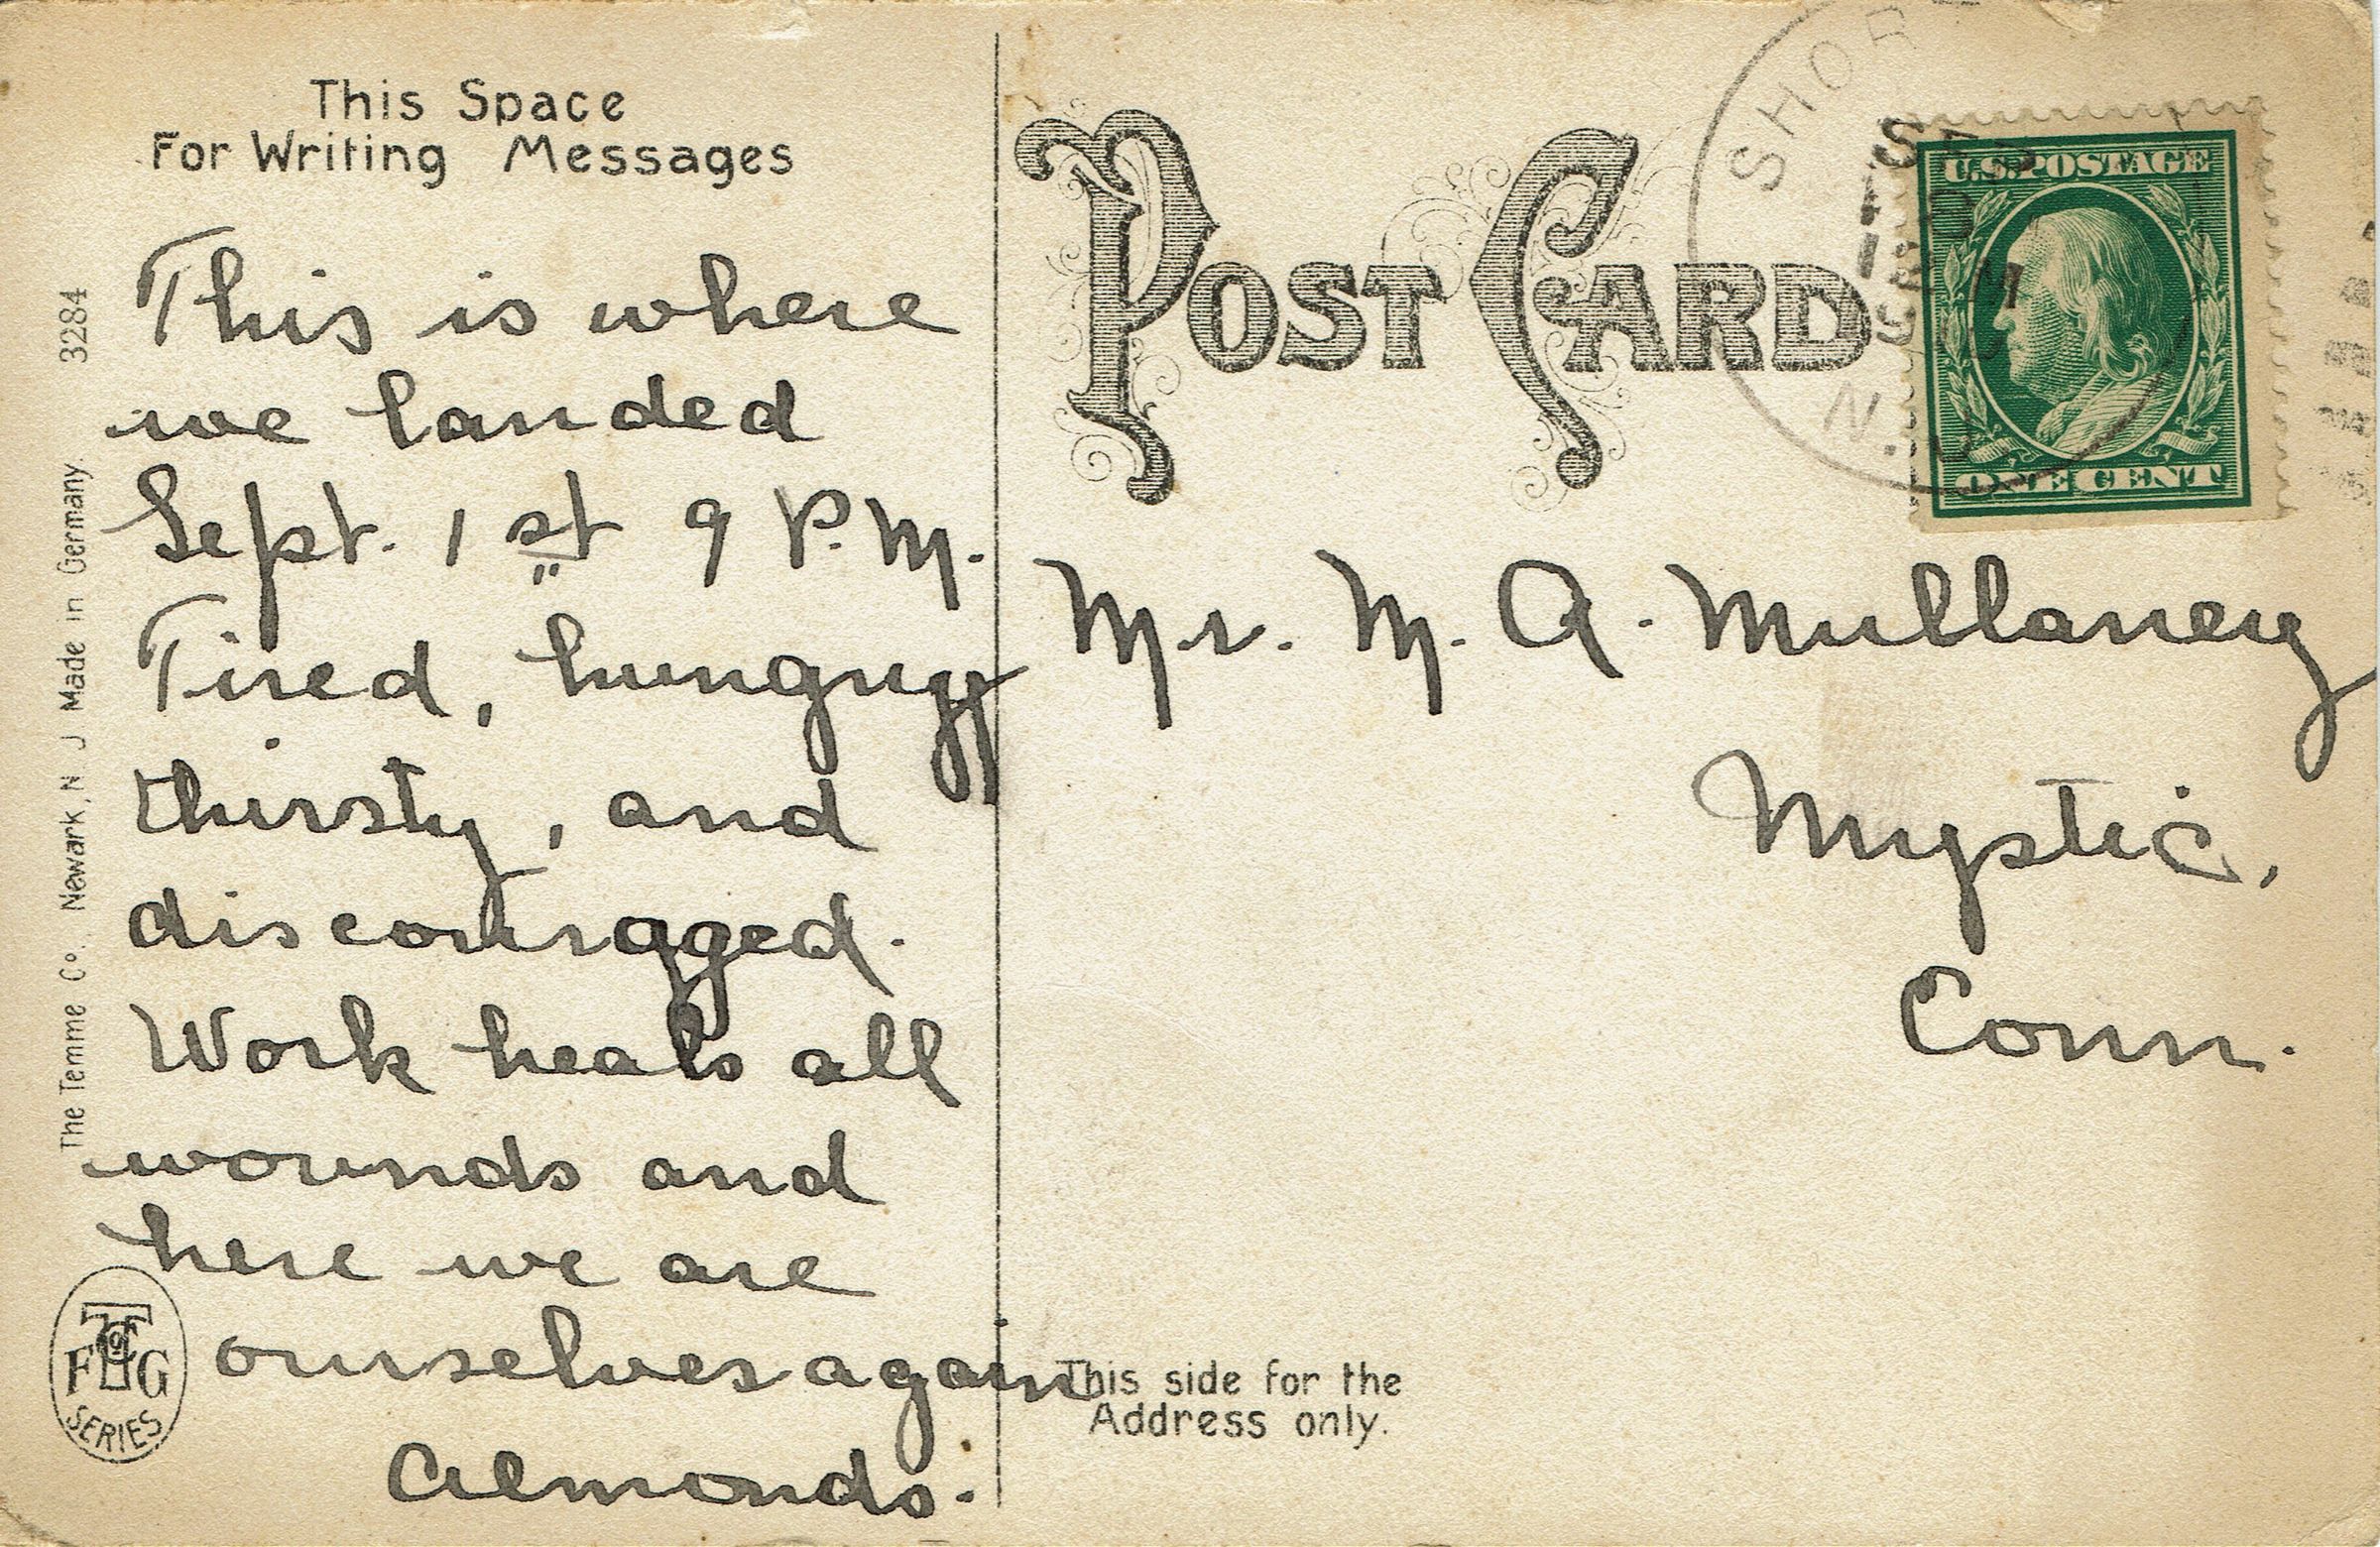 This Space
For Writing Messages
This is where
we landed
Sept. 1 st 9 P.M.
Tired, hungry
thirsty, and
discouraged.
Work heals all
wounds and
here we are
ourselves again
Almonds.
The Temme Co., Newark, N J Made in Germany. 3284
SERIES
POST CARD
SHOR
N.J.
U.S. POSTAGE
ONE CENT
Mr. M. A. Mullaney
Mystic,
Conn.
This side for the
Address only.